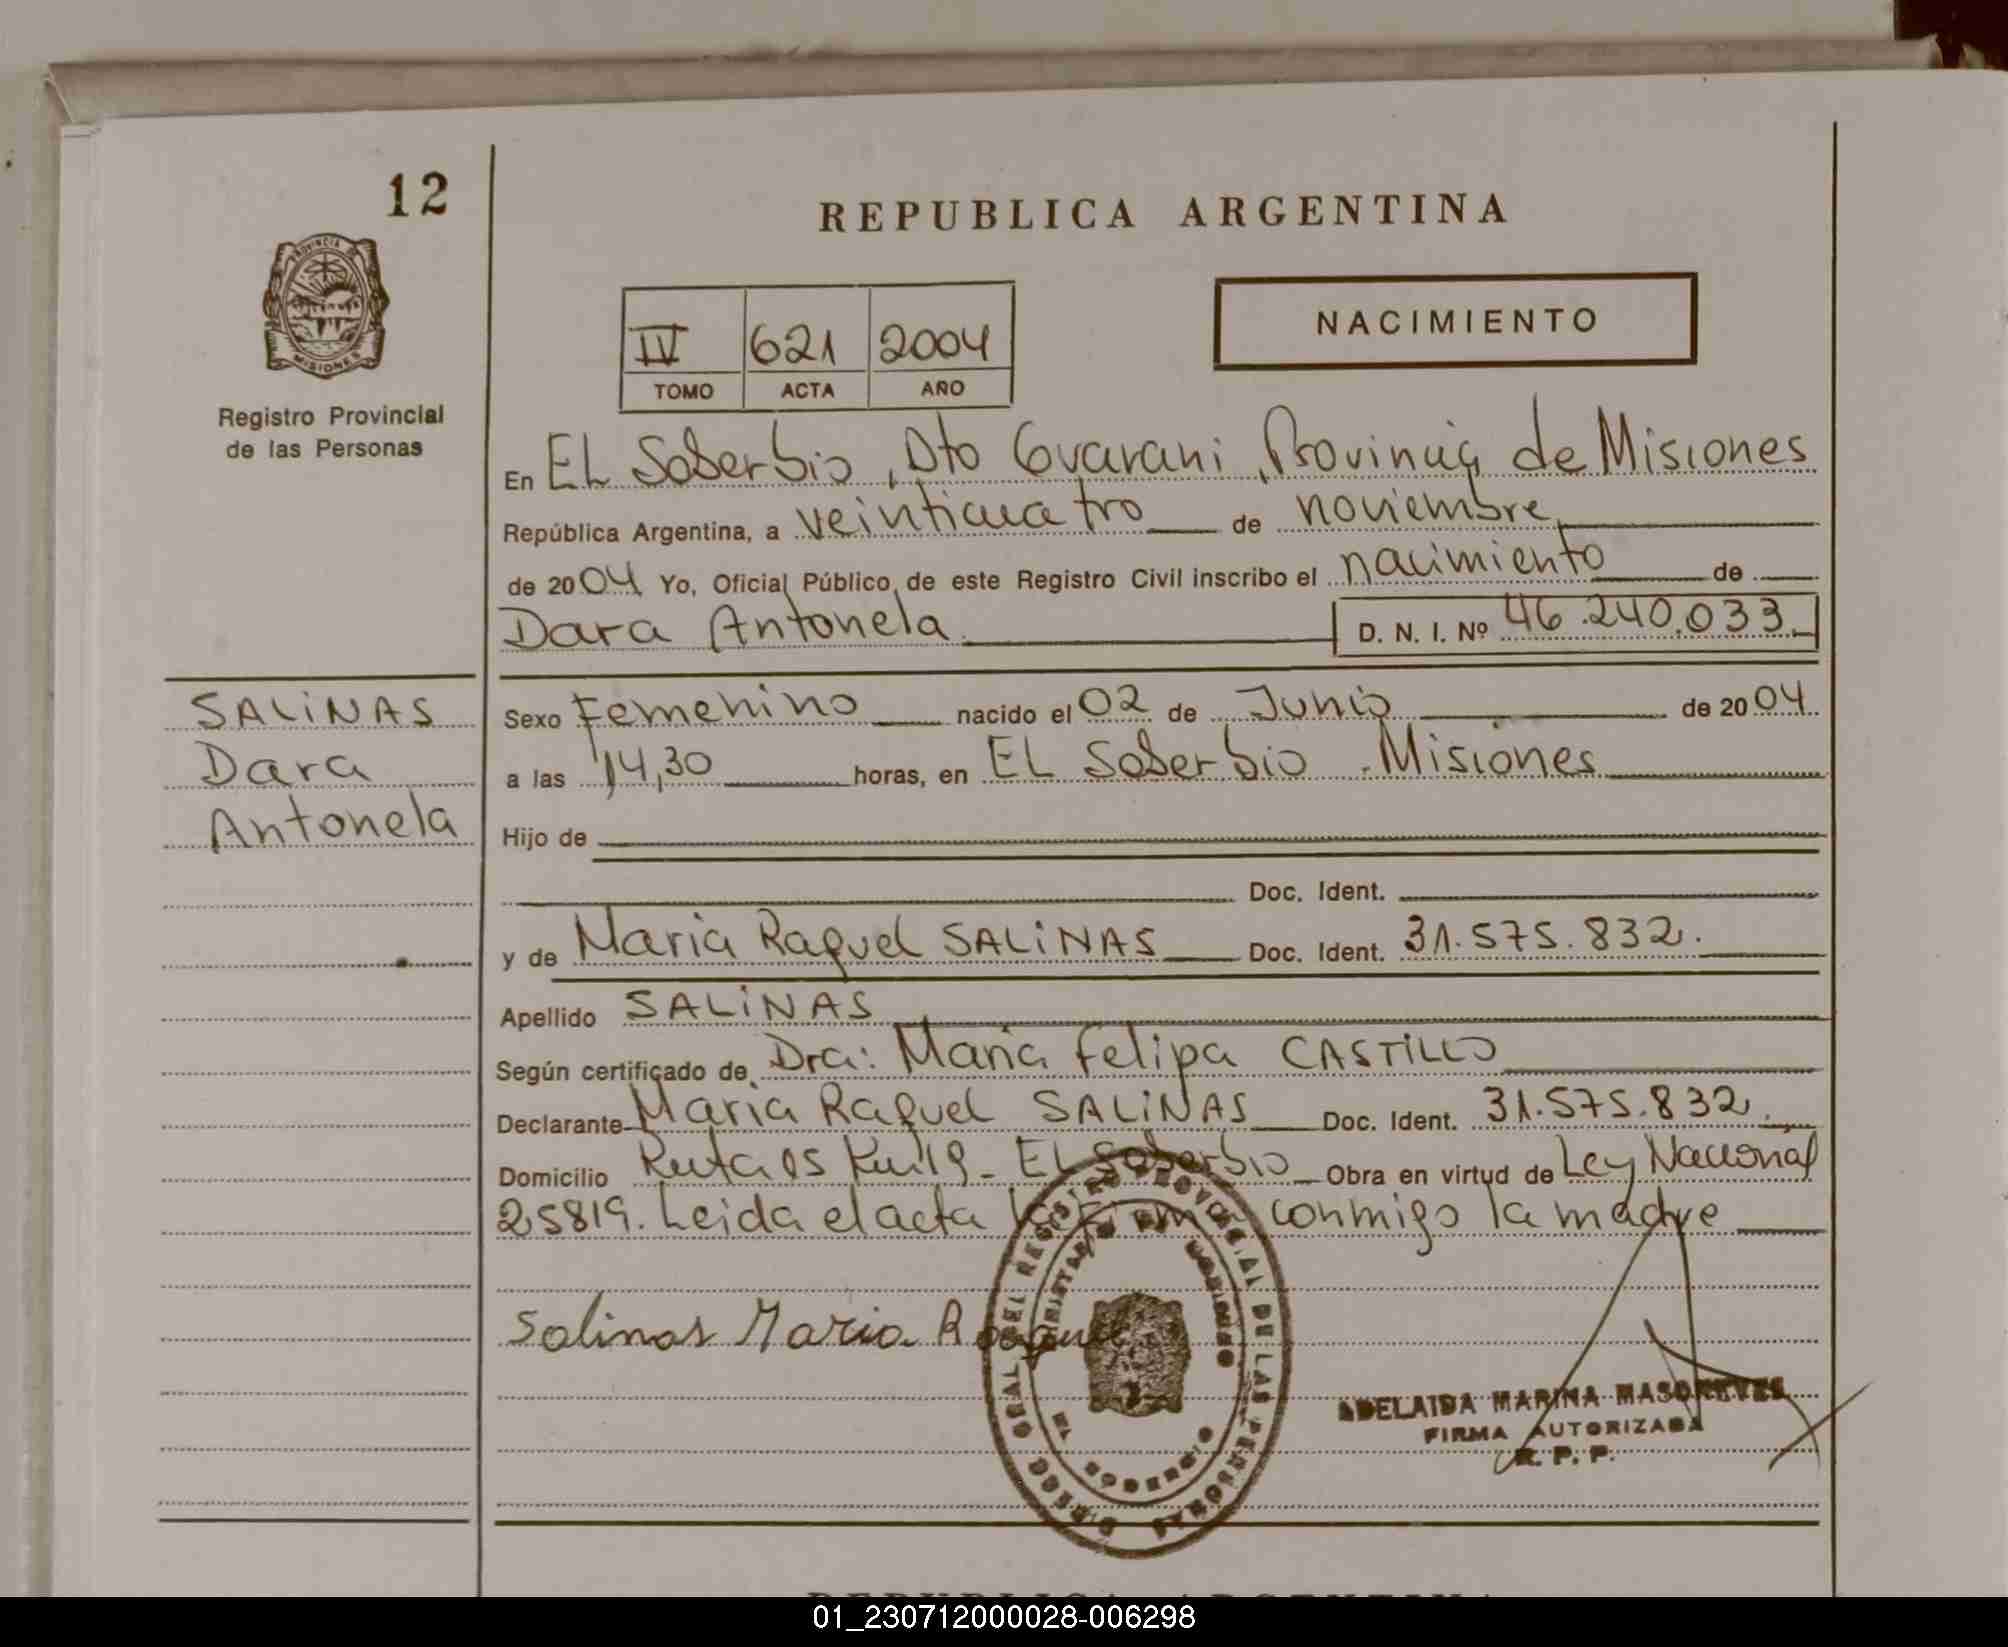 12
REPUBLICA ARGENTINA
PROVINCIA DE
MISIONES
Registro Provincial
de las Personas
NACIMIENTO
IV 621 2004
TOMO ACTA AÑO
En EL Soberbio, Dto Guarani, Provincia de Misiones
República Argentina, a veinticuatro de noviembre
de 2004 Yo, Oficial Público de este Registro Civil inscribo el nacimiento de
Dara Antonela D. N. I. Nº 46.240.033.
SALiNAS
Dara
Antonela
Sexo Femenino nacido el 02 de Junio de 2004
a las 14,30 horas, en EL Soberbio - Misiones
Hijo de
Doc. Ident.
y de Maria Raquel SALiNAS Doc. Ident. 31.575.832.
Apellido SALiNAS
Según certificado de Dra: Maria Felipa CASTiLLO
Declarante Maria Raquel SALiNAS Doc. Ident. 31.575.832.
Domicilio Ruta 05 Km 19 - EL Soberbio Obra en virtud de Ley Nacional
25819. Leida el acta la firma conmigo la madre
Salinas Maria Raquel
DE LAS PERSONAS
SOBERBIO
ADELAIDA MARINA
FIRMA AUTORIZADA
R. P. P.
REPUBLICA ARGENTINA
01_230712000028-006298